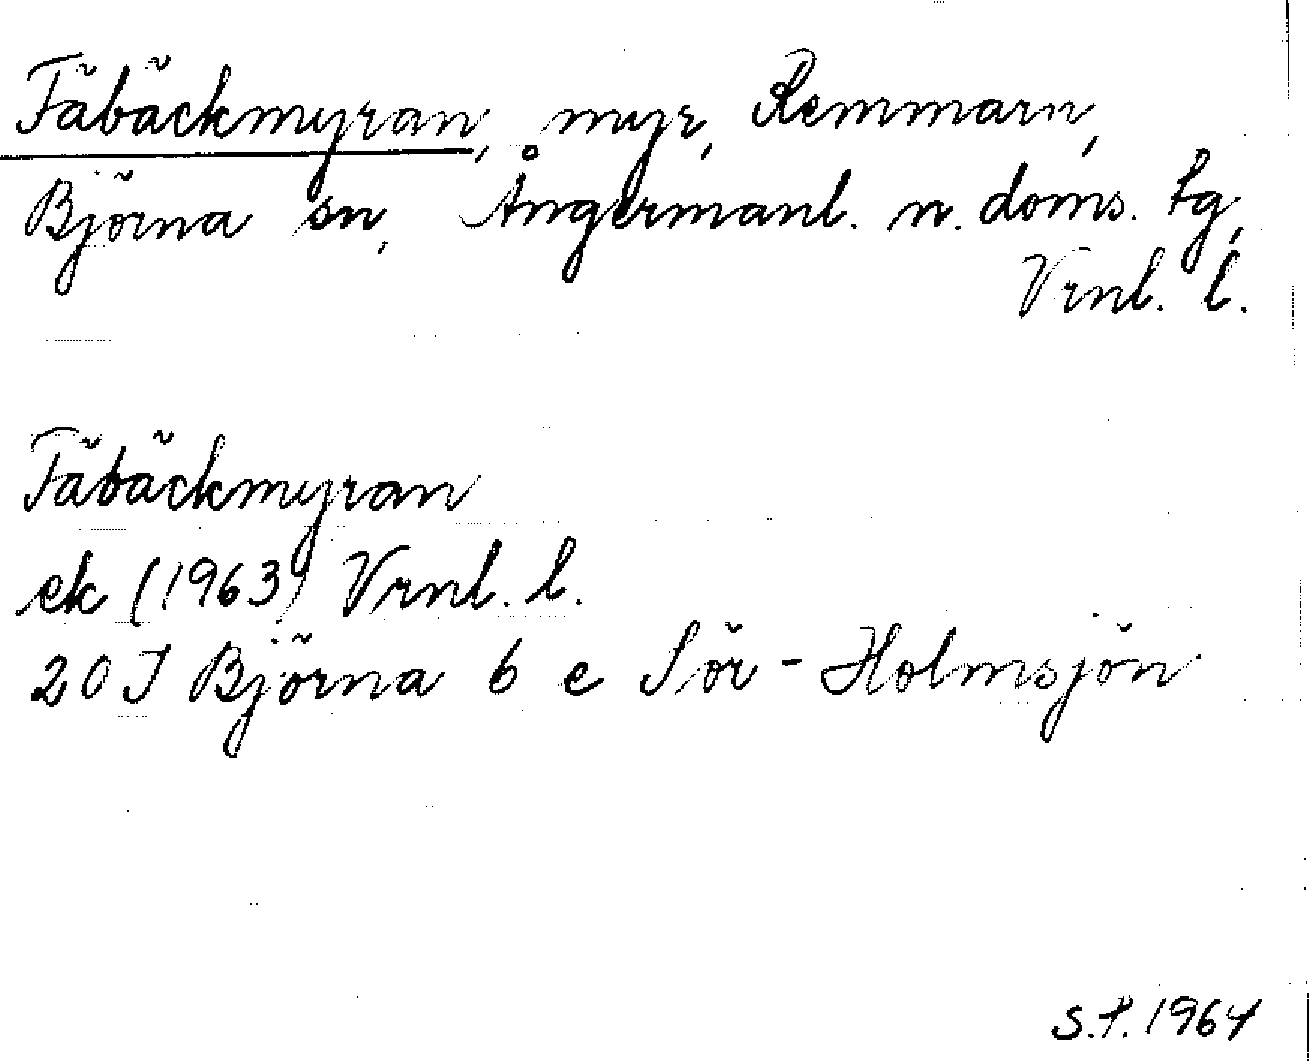 Fäbäckmyran, myr, Remmarn,
Björna sn, Ångermanl. n. doms. tg,
Vrnl. l.
Fäbäckmyran
ek (1963) Vrnl. l.
20 J Björna 6 e Sör-Holmsjön
S.P. 1964